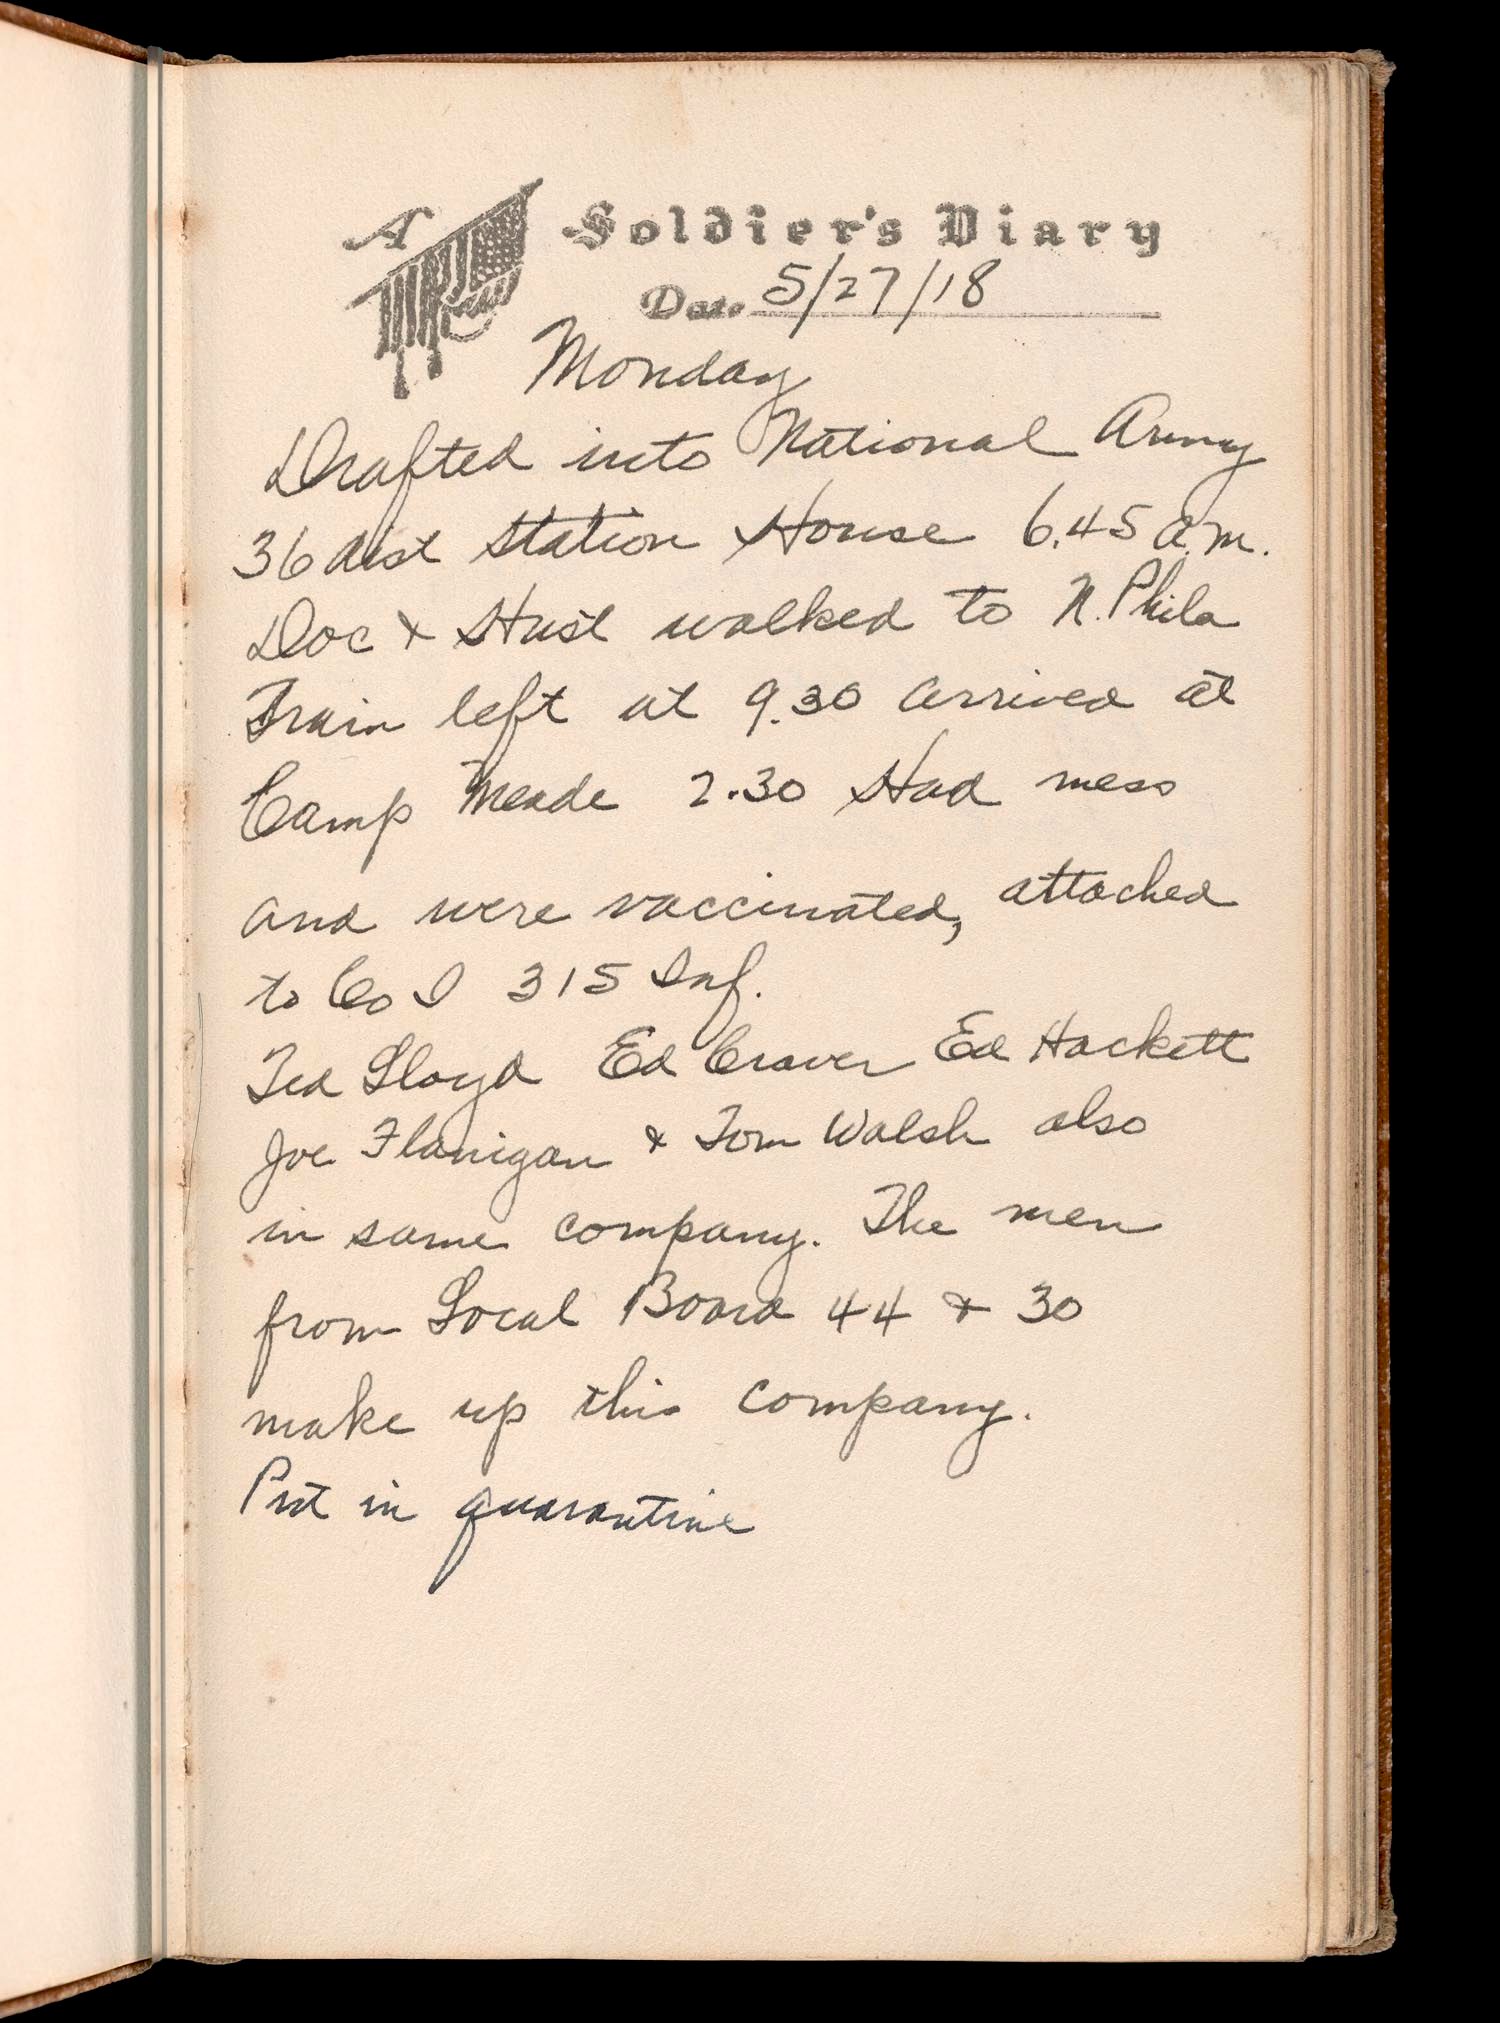 A Soldier's Diary
Date 5/27/18
Monday
Drafted into National Army
36 dist Station House 6.45 a.m.
Doc & Hust walked to N. Phila
Train left at 9.30 arrived at
Camp Meade 2.30 Had mess
and were vaccinated, attached
to Co I 315 Inf.
Ted Lloyd Ed Craver Ed Hackett
Joe Flanigan & Tom Walsh also
in same company. The men
from Local Board 44 & 30
make up this company.
Put in quarantine